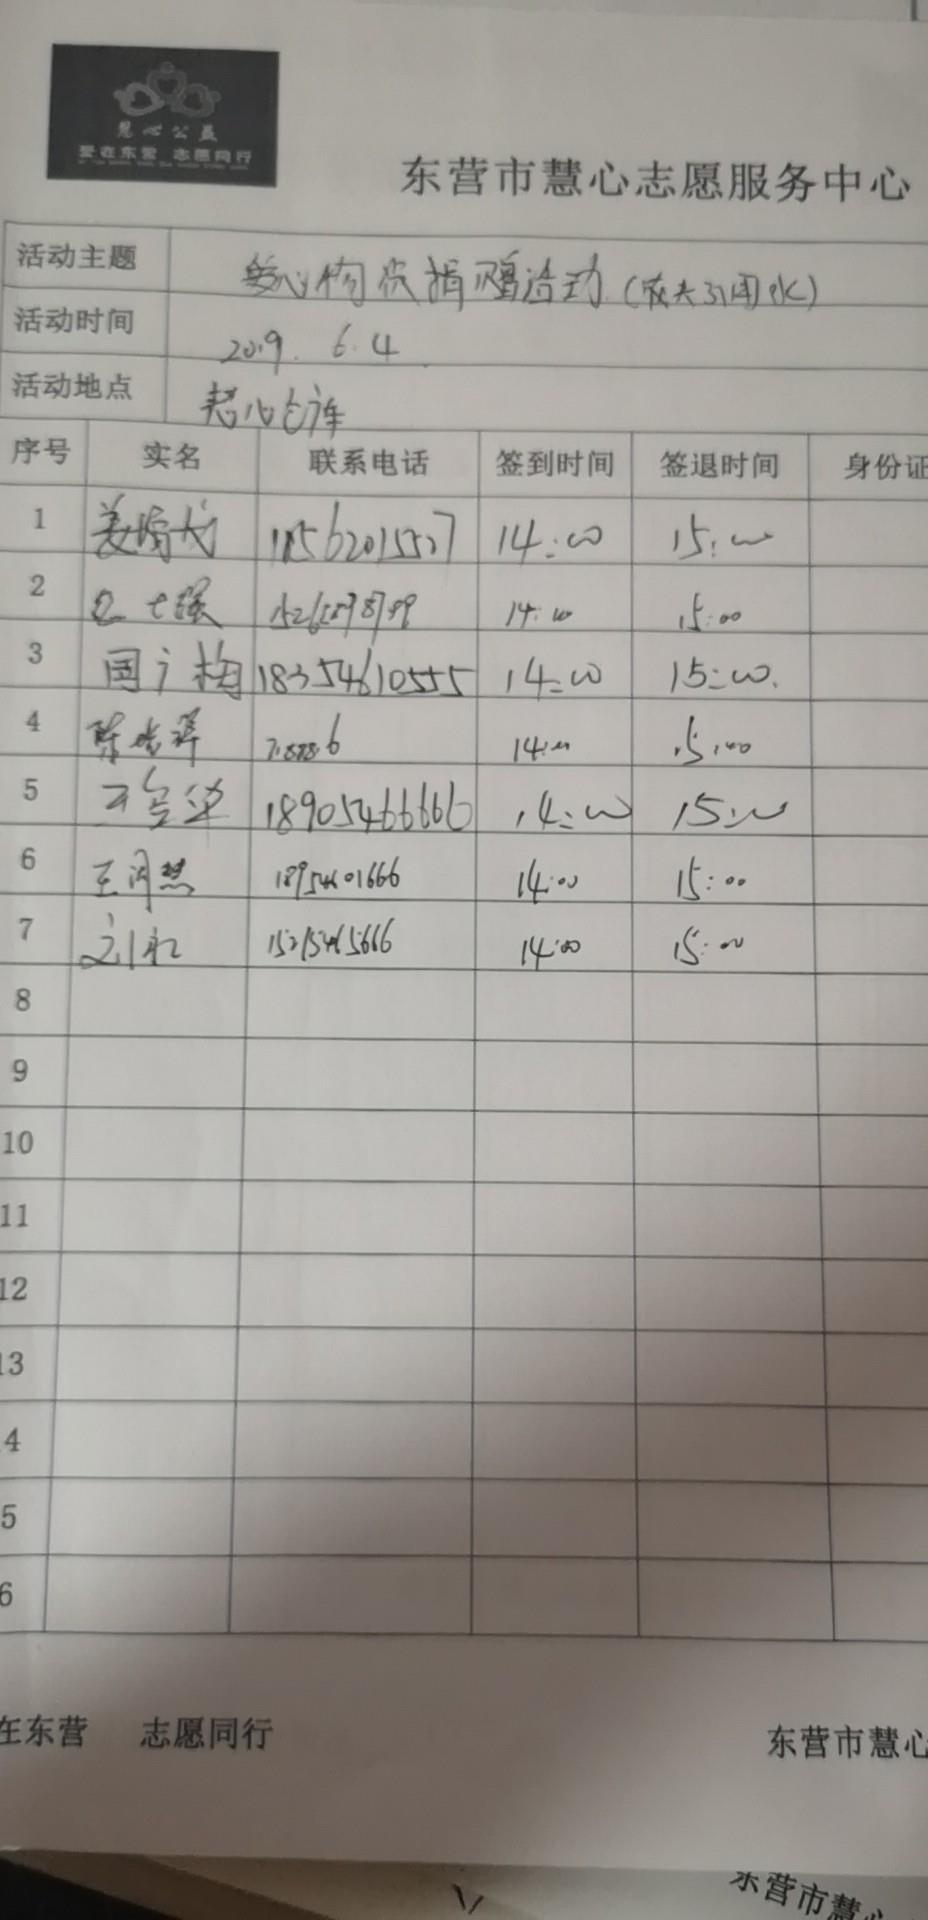 慧心公益
爱在东营 志愿同行
东营市慧心志愿服务中心
活动主题 爱心物资捐赠活动（农夫 水）
活动时间 2019. 6.4
活动地点 慧心仓库
序号 实名 联系电话 签到时间 签退时间 身份证
1 姜 14:00 15:00
2 14:00 15:00
3 国广梅 18354610555 14:00 15:00
4 陈 14:00 15:00
5 王 华 18905466666 14:00 15:00
6 王闰慧 18954601666 14:00 15:00
7 刘红 15215465666 14:00 15:00
8
9
10
11
12
13
4
5
6
在东营 志愿同行 东营市慧心
东营市慧心